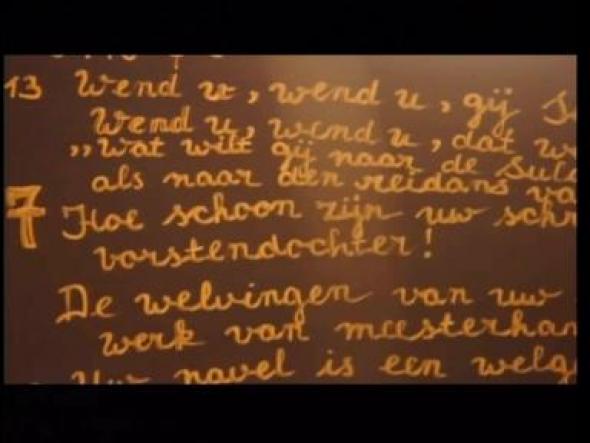 13 Wend u, wend u, gij
Wend u, wend u, dat
„Wat wilt gij naar de
als naar den reidans
7 Hoe schoon zijn uw
vorstendochter!
De welvingen van uw
werk van
Uw navel is een